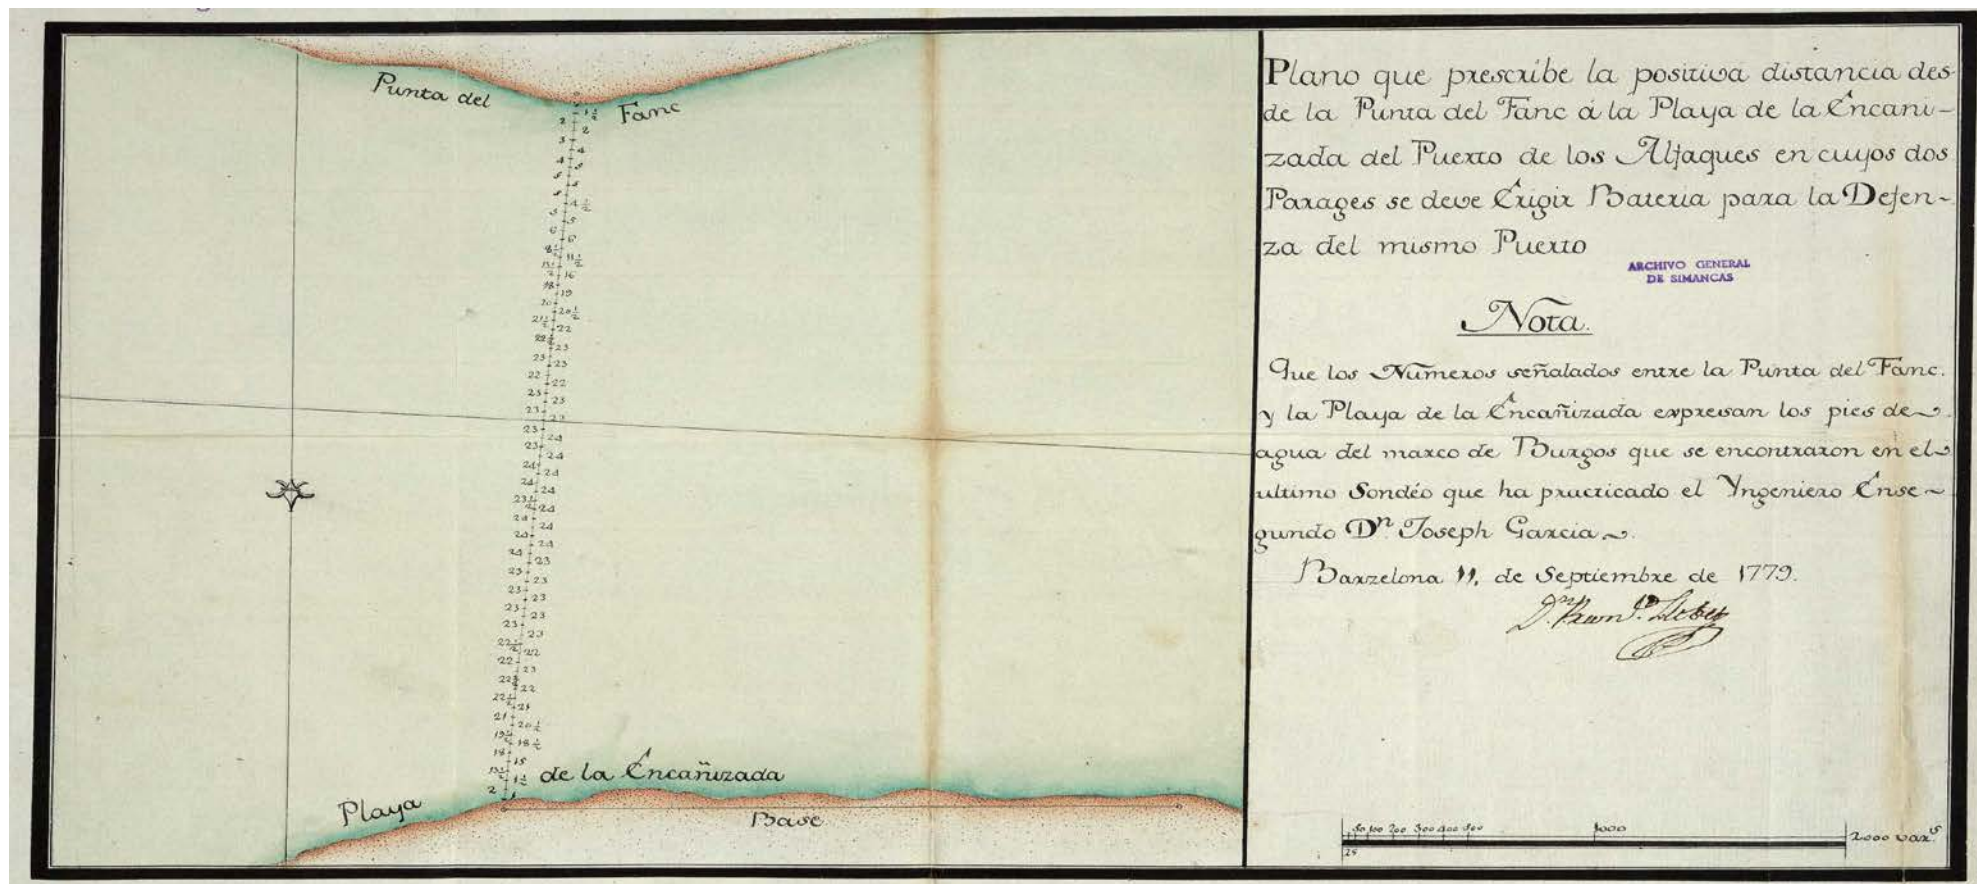 Punta del Fanc
1½
2
2
3
4
4
5
5
5
5
4½
5
5
6
6
8½
11½
13½
16
18
19
20
20½
21½
22
22½
23
23
23
22
22
23
23
23
23
23
24
23
24
24
24
24
24
23½
24
24
24
24
24
24
23
23
23
23
23
23
23
23
23
22½
22
22
23
22½
22
22½
21
21
20½
19½
18½
18
15
13½
1½
2
1
Playa de la Encañizada
Base
Plano que prescribe la positiva distancia des-
de la Punta del Fanc á la Playa de la Encani-
zada del Puerto de los Alfaques en cuyos dos
Parages se deve Érigir Bateria para la Defen-
za del mismo Puerto
ARCHIVO GENERAL
DE SIMANCAS
Nota.
Que los Numeros señalados entre la Punta del Fanc.
y la Playa de la Encañizada expresan los pies de
agua del marco de Burgos que se encontraron en el
ultimo Sondéo que ha practicado el Yngeniero Ense-
gundo Dn. Joseph Garcia.
Barzelona 11, de Septiembre de 1779.
50 100 200 300 400 500 1000 2000 vars
25